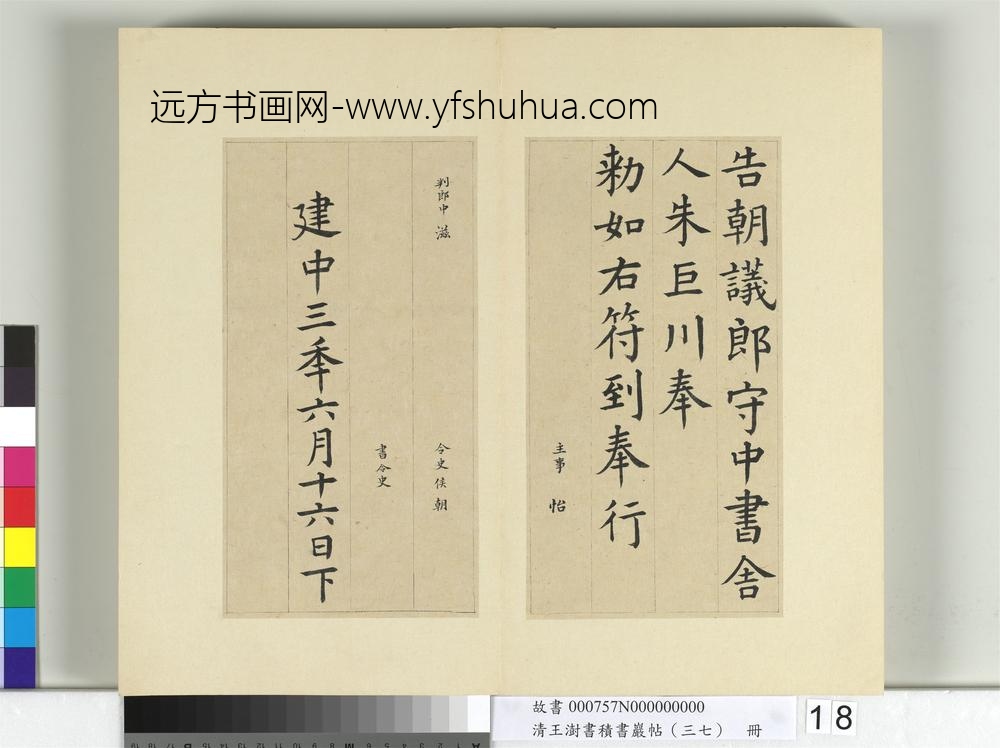 远方书画网-www.yfshuhua.com
告朝議郎守中書舍
人朱巨川奉
勅如右符到奉行
主事 怡
判郎中 滋 令史 侯朝
書令史
建中三秊六月十六日下
故書 000757N000000000
清王澍書積書巖帖（三七） 冊
18